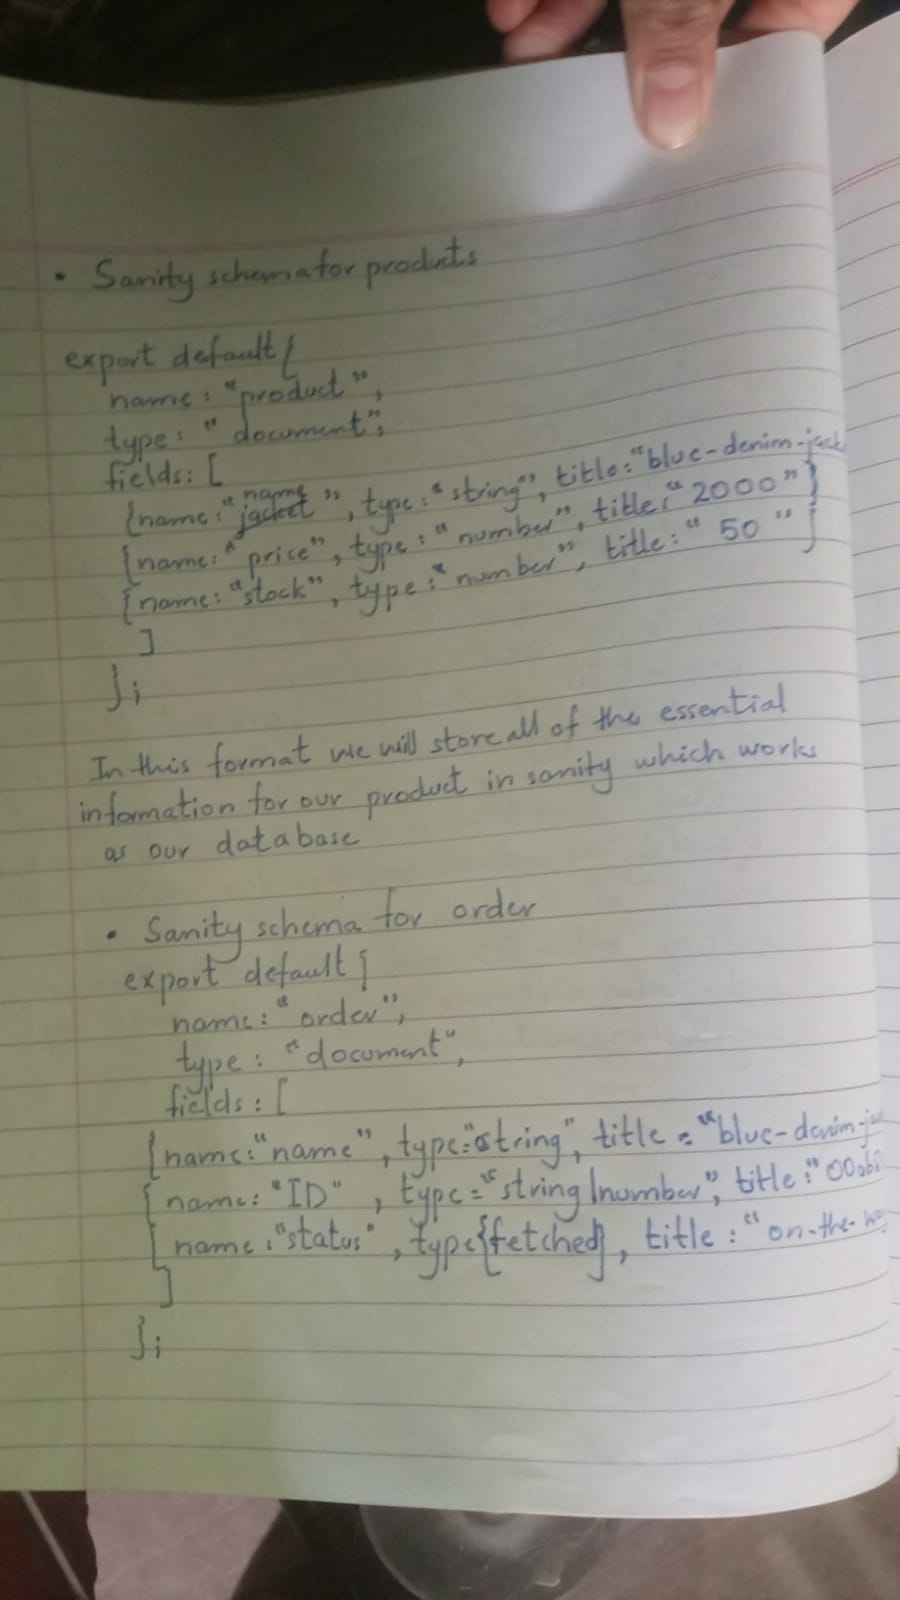 • Sanity schema for products
export default {
name : "product",
type : "document";
fields: [
{name : "name jacket", type : "string", title : "blue-denim-jack
{name: "price", type : "number", title: "2000"}
{name: "stock", type : "number", title : "50"}
]
};
In this format we will store all of the essential
information for our product in sanity which works
as our database
• Sanity schema for order
export default {
name : "order",
type : "document",
fields : [
{name: "name", type="string", title = "blue-denim-ja
{name: "ID", type="string|number", title : "00ab
{name : "status", type{fetched}, title : "on-the-wa
]
};